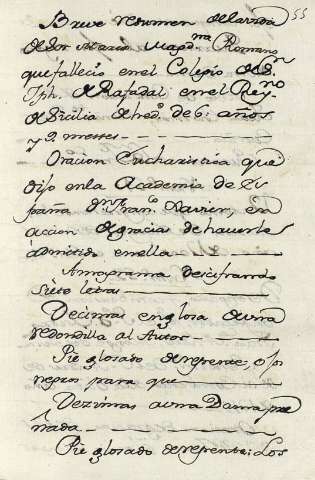 55
Breve resumen dela vida
de Sor Maria Magd.na Romano
que fallecio en el Colegio de S.n
Jph. de Rafadal: en el Rey.no
de Sicilia de hed.d de 6. años
y 2. messes
Oracion Eucharistica que
dijo en la Academia de Es
paña D.n Fran.co Xavier, en
accion de gracias de haverle
admitido en ella
Anagrama descifrando
siete letras
Decimas en glosa de una
redondilla al Autor
Pie glosado de repente, ojos
negros para que
Dezimas a una Dama pre
ñada
Pie glosado de repente: Los